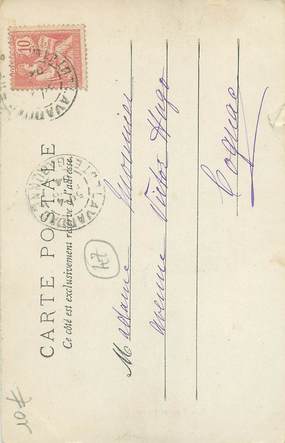 CARTE POSTALE
Ce côté est exclusivement réservé à l'adresse
10
Madame
avenue Victor Hugo
Cognac
47
10€